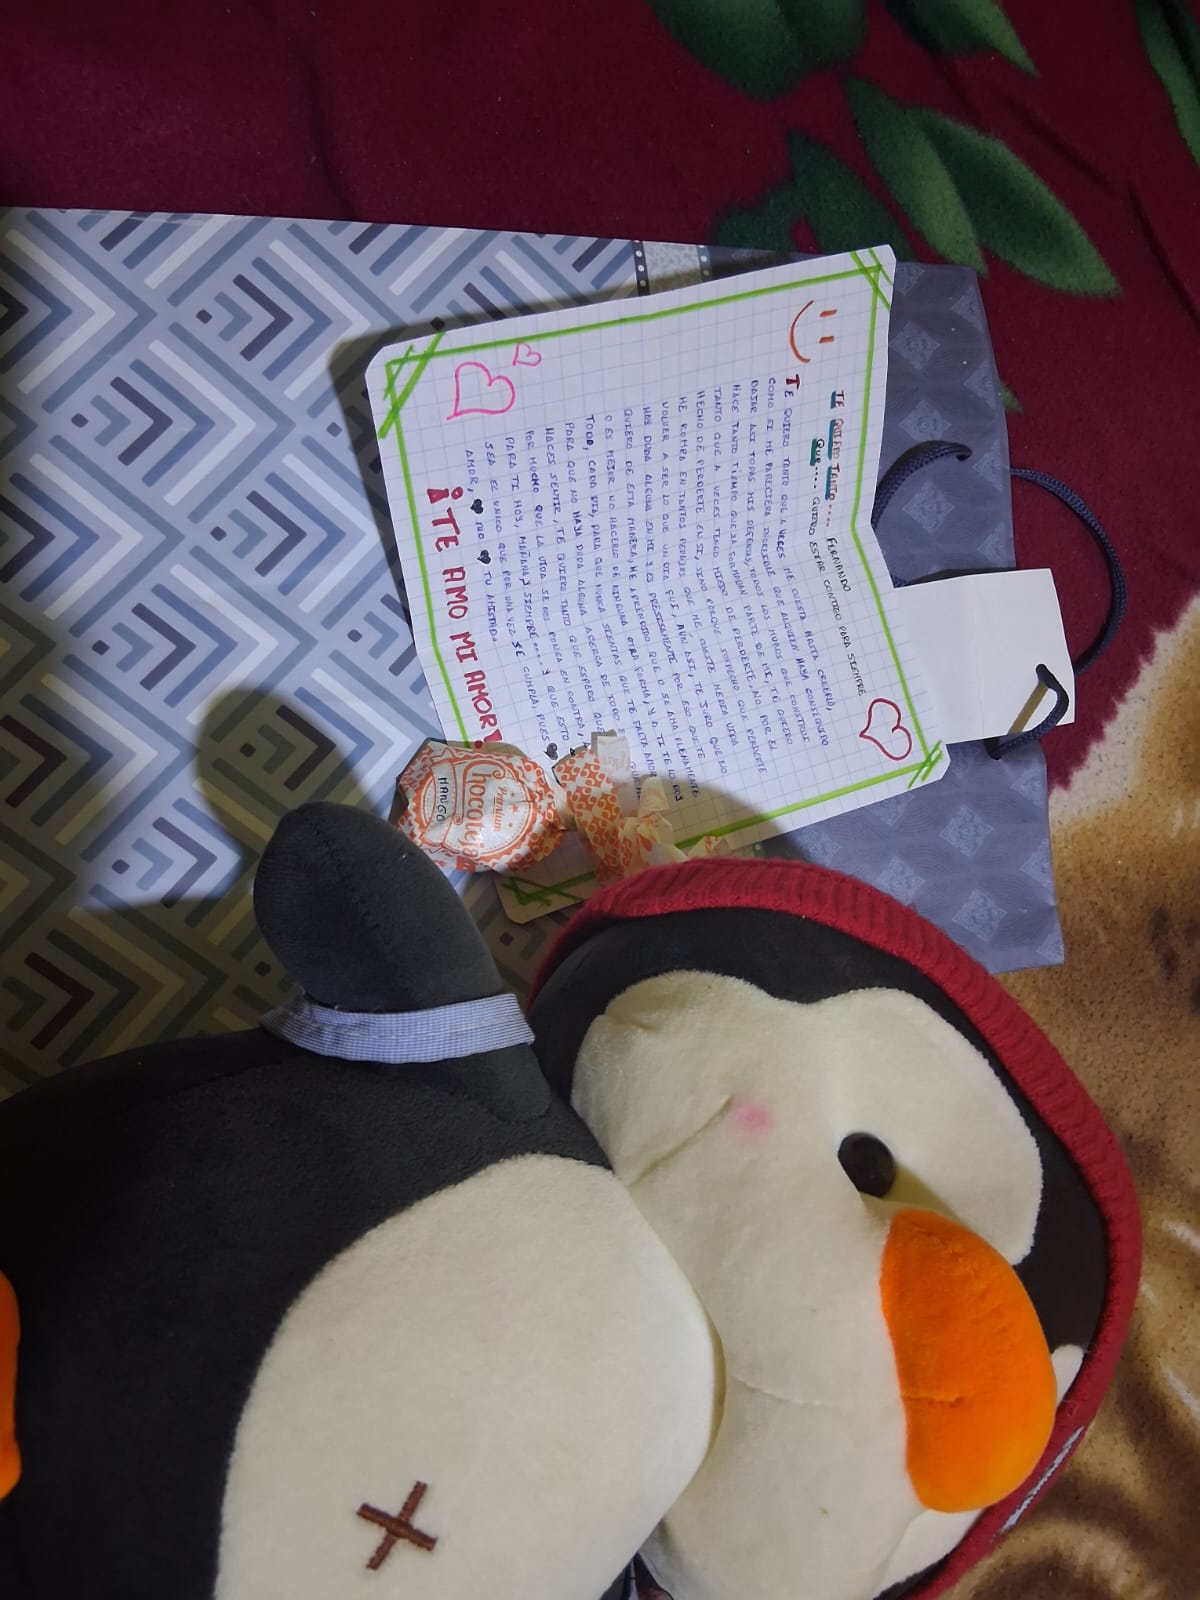 TE QUIERO TANTO.... FERNANDO
QUE.... QUIERO ESTAR CONTIGO PARA SIEMPRE
TE QUIERO TANTO QUE A VECES ME CUESTA HASTA CREERLO,
COMO SI ME PARECIERA INCREIBLE QUE ALGUIEN HAYA CONSEGUIDO
BAJAR ASI TODAS MIS DEFENSAS, TODOS LOS MUROS QUE CONSTRUI
HACE TANTO TIEMPO QUE YA FORMABAN PARTE DE MI, TE QUIERO
TANTO QUE A VECES TENGO MIEDO DE PERDERTE, NO POR EL
HECHO DE PERDERTE EN SI, SINO PORQUE SOSPECHO QUE PERDERTE
ME ROMPA EN TANTOS PEDAZOS QUE ME CUESTE MEDIA VIDA
VOLVER A SER LO QUE UN DIA FUI, AUN ASI, TE JURO QUE NO
HAY DUDA ALGUNA EN MI Y ES PRECISAMENTE POR ESO QUE TE
QUIERO DE ESTA MANERA, HE APRENDIDO QUE O SE AMA PLENAMENTE
O ES MEJOR NO HACERLO DE NINGUNA OTRA FORMA, Y A TI TE LO DOY
TODO, CADA DIA, PARA QUE NUNCA SIENTAS QUE TE FALTA AMOR
PARA QUE NO HAYA DUDA ALGUNA ACERCA DE TODO
HACES SENTIR, TE QUIERO TANTO QUE ESPERO QUE
POR MUCHO QUE LA VIDA SE NOS PONGA EN CONTRA,
PARA TI HOY, MAÑANA Y SIEMPRE.... Y QUE ESTO
SEA EL UNICO QUE POR UNA VEZ SE CUMPLA, PUES
AMOR, ♥ ♥ TU AMISTAD.
¡TE AMO MI AMOR
Premium
Chocoteja
MANGO